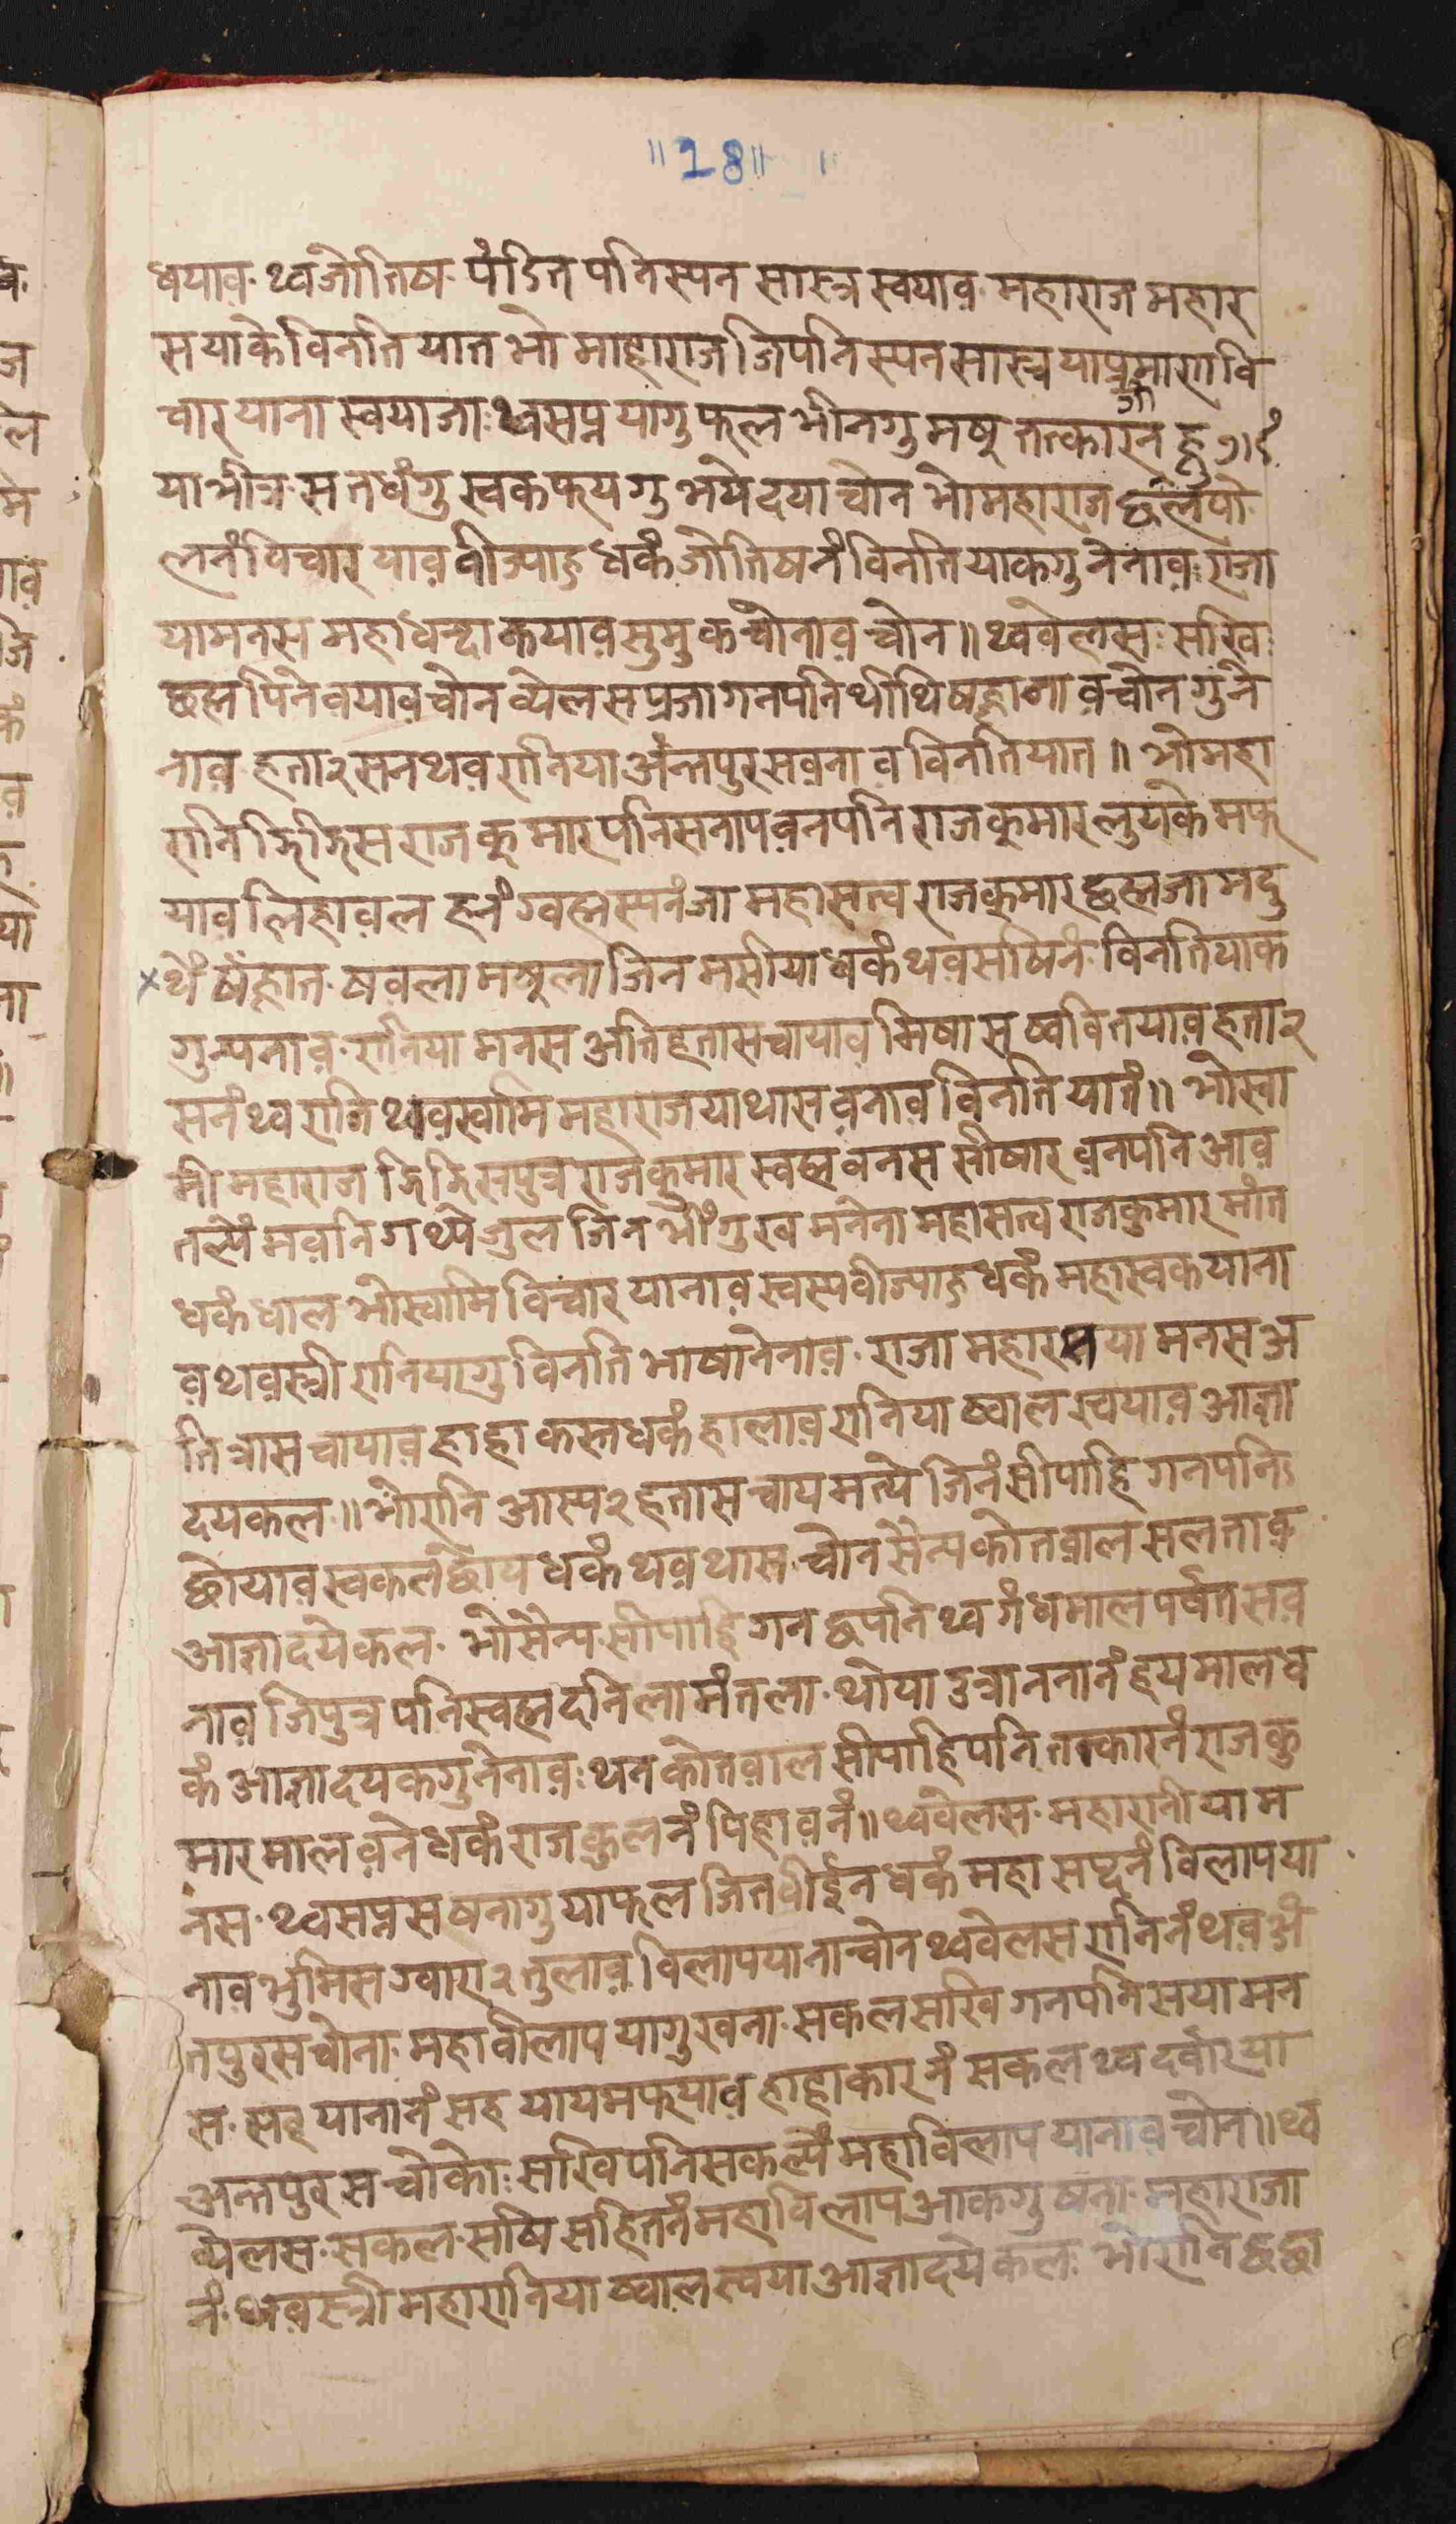 ॥ 18 ॥
धयाव थ्वजोतिष पंडित पनिस्यन सास्त्र स्वयाव महाराज महार
सयाके विनति यात भो माहाराज जिपनिस्यन सास्त्र याप्रमारा वि
चार याना स्वयाजा थ्वसप्न यागु फल भीनगु मषु तत्कारन
या भीत्र स तधंगु स्वकफयगु भये दया चोन भो महाराज छलपो
लनं विचार याव वीज्याहु धकं जोतिषनं विनति याकगु नेनाव राजा
यामनस महाधन्दा कयाव सुमुक चोनाव चोन ॥ थ्ववेलस सखि
छह्म पिने वयाव चोन व्येलस प्रजागनपनि थीथि षह्लाना व चोन गुने
नाव हतार सन थव रानिया अंन्तपुर सवना व विनति यात ॥ भो महा
रानि झिझिस राजकुमार पनिसनाप वनपनि राजकुमार लुयके मफ
याव लिहा वल हनं ग्वह्मस्यनं जा महासत्व राजकुमार छह्म जा मदु
× थें षंह्लात षवला मखुला जिन मसीया धकं थव सषिनं विनति याक
गु न्यनाव रानिया मनस अति हतास चायाव मिषास ष्ववि तयाव हतार
सनं थ्व रानि थव स्वामि महाराज याथास वनाव विनति यातं ॥ भो स्वा
मी महाराज झिझिस पुत्र राजकुमार स्वह्म वनस सीषार वनपनि आव
तल्यें मवनि गथ्ये जुल जिन भींगु रव मनेना महासत्व राजकुमार मांत
धकं धाल भो स्वामि विचार यानाव स्वस्य वीज्याहु धकं महास्वक याना
व थव स्त्री रानियागु विनति भाषा नेनाव राजा महारस या मनस अ
ति त्रास चायाव हाहा कस्त धकं हालाव रानिया ष्वाल स्वयाव आज्ञा
दयकल ॥ भो रानि आस्य २ हतास चाय मत्ये जिनं सीपाहि गनपनि
छोयाव स्वकल छोय धकं थव थास चोन सैन्य कोतवाल सलताव
आज्ञा दयेकल भो सैन्य सीपाहि गन छपनि थ्व गंधमाल पर्वत सव
नाव जिपुत्र पनि स्वह्म दनिला मंतला थोया उत्रान ननानं हय माल ध
कं आज्ञा दयकगु नेनाव थन कोतवाल सीपाहि पनि तत्कारनं राजकु
मार माल वने धकं राजकुलनं पिहा वनं ॥ थ्ववेलस महारानी या म
नस थ्वसप्नस षनागु याफल जित वीईन धकं महा सप्दनं विलाप या
नाव भुमिस ग्वारा २ तुलाव विलाप याना चोन थ्ववेलस रानिनं थव अं
तपुरस चोना महा वीलाप यागु खना सकल सखि गनपनिस या मन
स सह यानानं सह याय मफयाव हाहाकारनं सकल थ्व दर्वार या
अन्तपुर स चोको सखि पनि सकल्यें महाविलाप यानाव चोन ॥ थ्व
व्येलस सकल सषि सहितनं महाविलाप आकगु षना महाराजा
नं थव स्त्री महारानिया ष्वाल स्वया आज्ञा दयेकल भो रानि